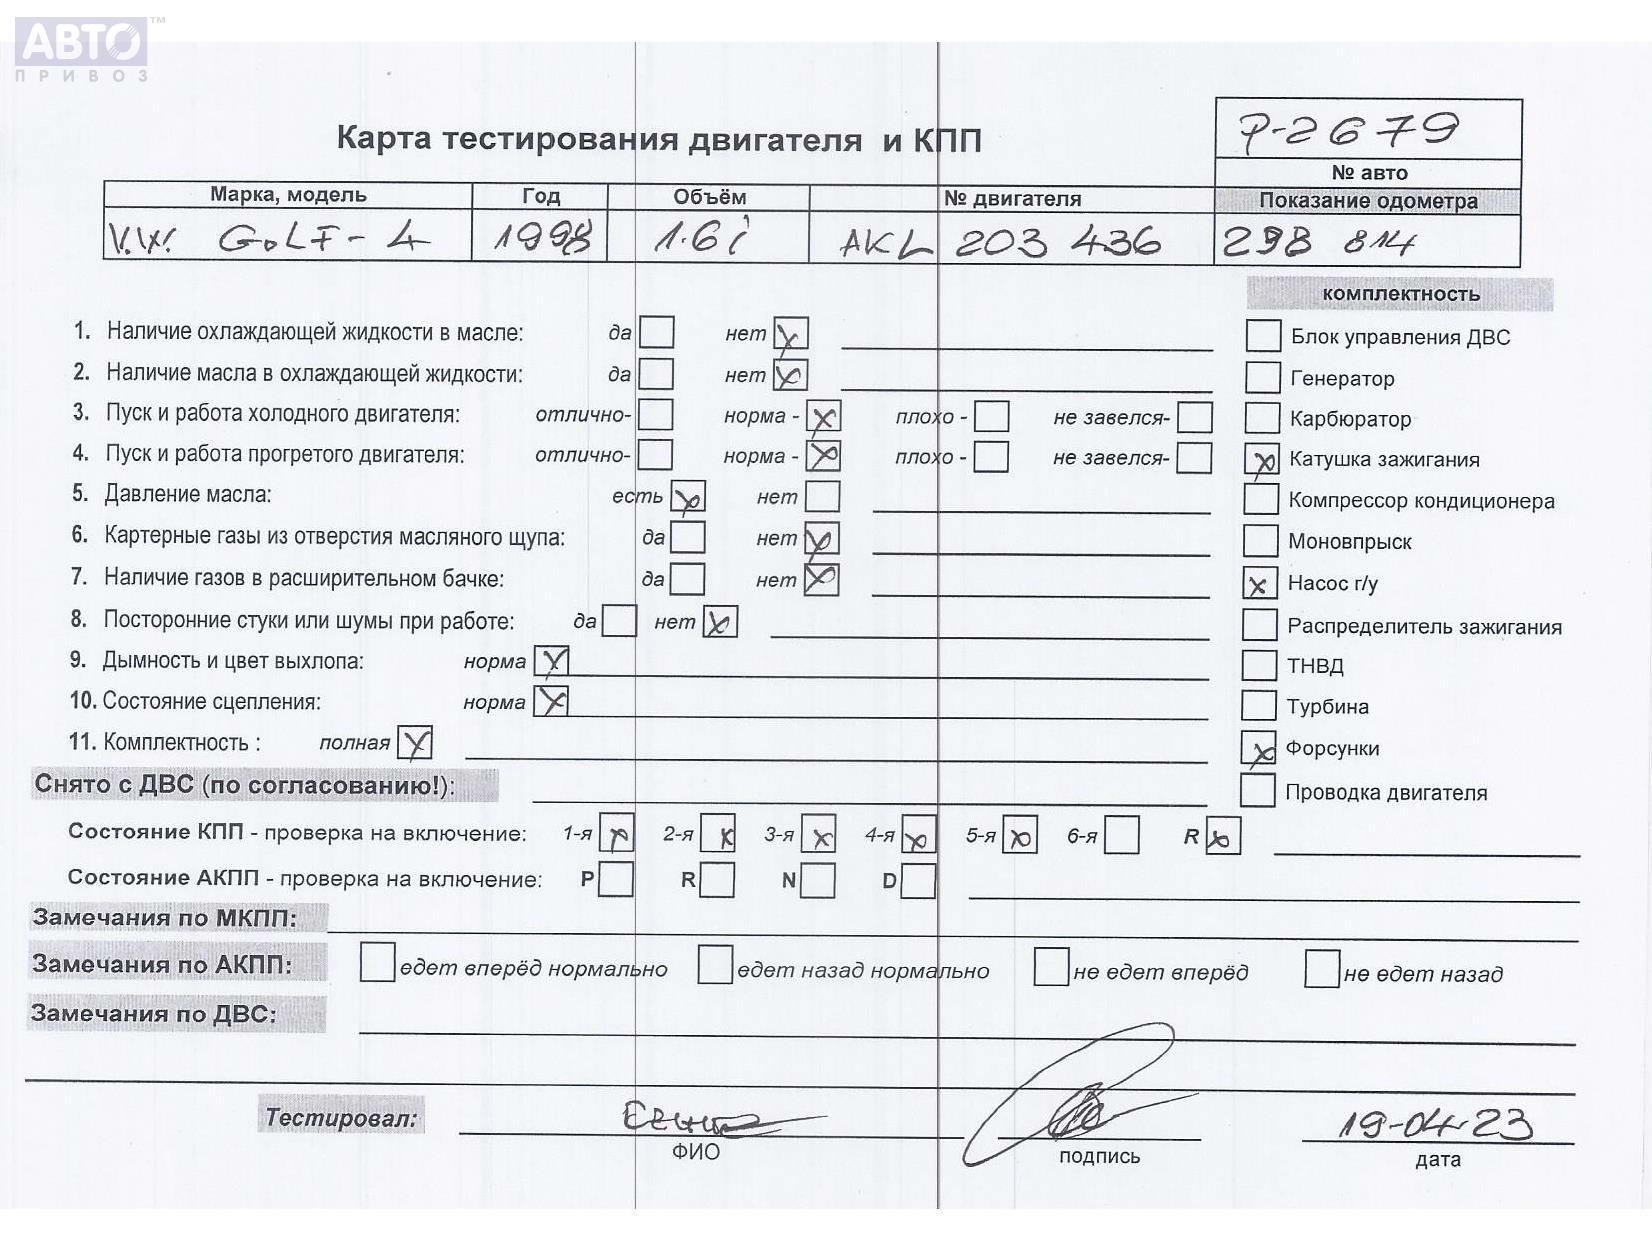 АВТО ™
ПРИВОЗ
Р-2679
Карта тестирования двигателя и КПП
№ авто
Марка, модель Год Объём № двигателя Показание одометра
V.W. GOLF-4 1998 1.6i AKL 203 436 298 814
комплектность
1. Наличие охлаждающей жидкости в масле: да нет x Блок управления ДВС
2. Наличие масла в охлаждающей жидкости: да нет x Генератор
3. Пуск и работа холодного двигателя: отлично- норма - x плохо - не завелся- Карбюратор
4. Пуск и работа прогретого двигателя: отлично- норма - x плохо - не завелся- x Катушка зажигания
5. Давление масла: есть x нет Компрессор кондиционера
6. Картерные газы из отверстия масляного щупа: да нет x Моновпрыск
7. Наличие газов в расширительном бачке: да нет x x Насос г/у
8. Посторонние стуки или шумы при работе: да нет x Распределитель зажигания
9. Дымность и цвет выхлопа: норма x ТНВД
10. Состояние сцепления: норма x Турбина
11. Комплектность : полная x x Форсунки
Снято с ДВС (по согласованию!): Проводка двигателя
Состояние КПП - проверка на включение: 1-я x 2-я x 3-я x 4-я x 5-я x 6-я R x
Состояние АКПП - проверка на включение: P R N D
Замечания по МКПП:
Замечания по АКПП: едет вперёд нормально едет назад нормально не едет вперёд не едет назад
Замечания по ДВС:
Тестировал: 19-04-23
ФИО подпись дата